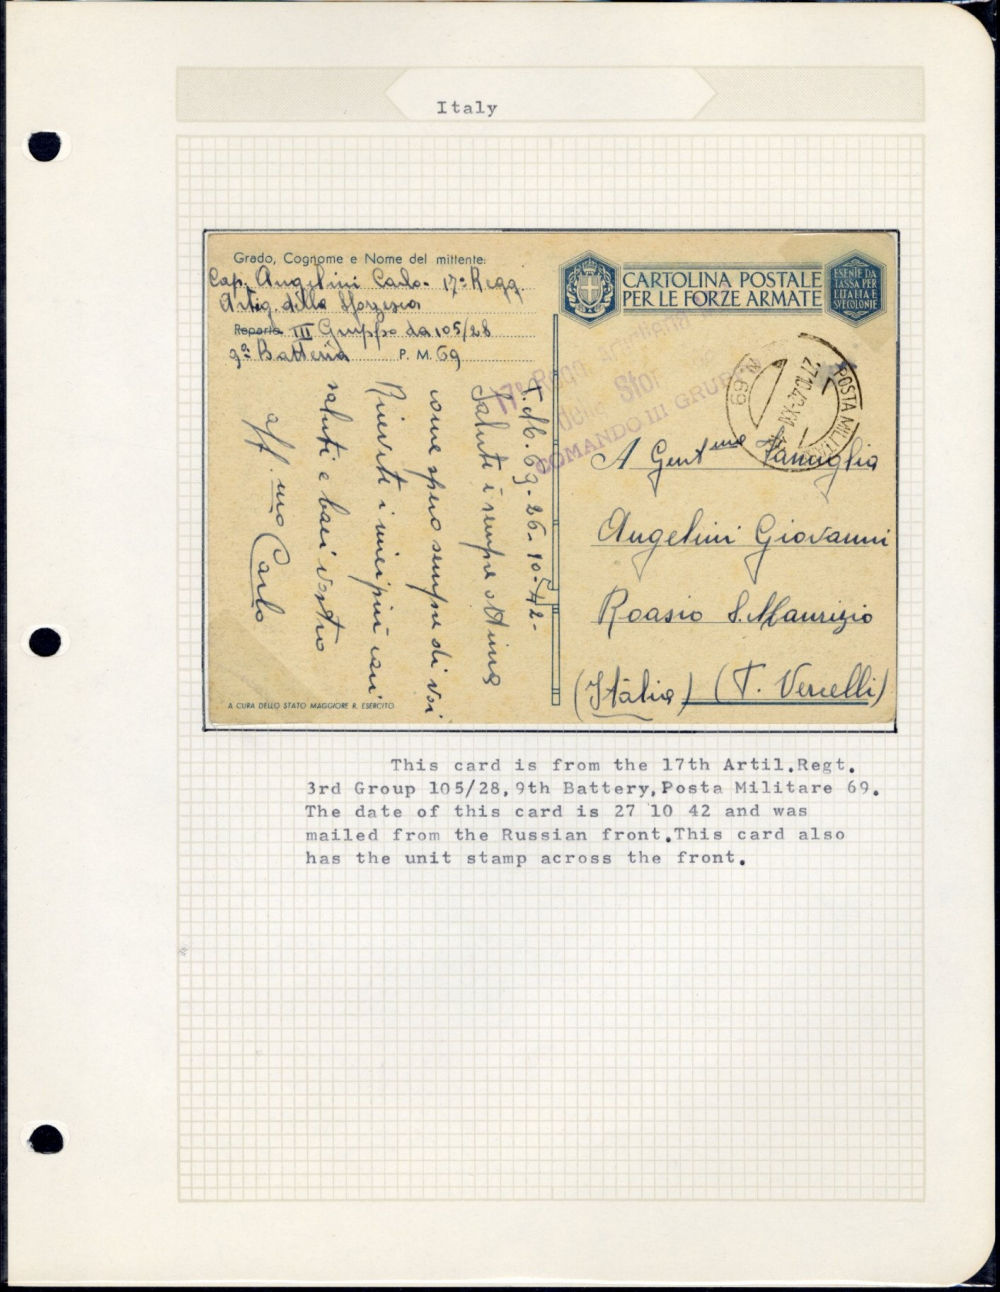 Italy
Grado, Cognome e Nome del mittente:
Cap. Angelini Carlo - 17º Regg.
Artig. della Sforzesca
Reparto III Gruppo da 105/28
9ª Batteria P. M. 69
CARTOLINA POSTALE
PER LE FORZE ARMATE
ESENTE DA
TASSA PER
L'ITALIA E
SVE COLONIE
17º Regg. Artiglieria
della Sfor
COMANDO III GRUPPO
POSTA MILITARE
27.10.42.XX
N. 69
P.M. 69 - 26-10-42-
Saluti i sempre
come spero sempre di voi
Ricevete i miei più cari
saluti e baci vostro
aff.mo Carlo
A Gent.me Famiglia
Angelini Giovanni
Roasio S. Maurizio
(Italia) (P. Vercelli)
A CURA DELLO STATO MAGGIORE R. ESERCITO
This card is from the 17th Artil.Regt.
3rd Group 105/28,9th Battery,Posta Militare 69.
The date of this card is 27 10 42 and was
mailed from the Russian front.This card also
has the unit stamp across the front.